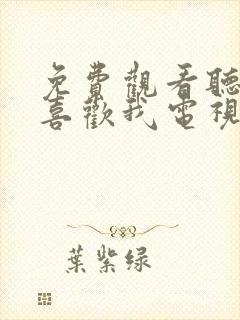 免費觀看聽
喜歡我電視
葉紫绿